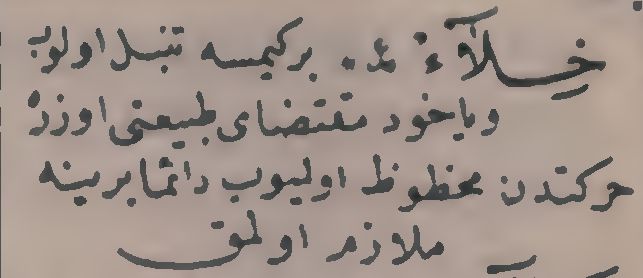 خيلآء مد بركيمسه تنبل اولوب
وياخود مقتضاى طبيعتى اوزره
حركتدن محظوظ اوليوب دائما بر ينه
ملازم اولمق